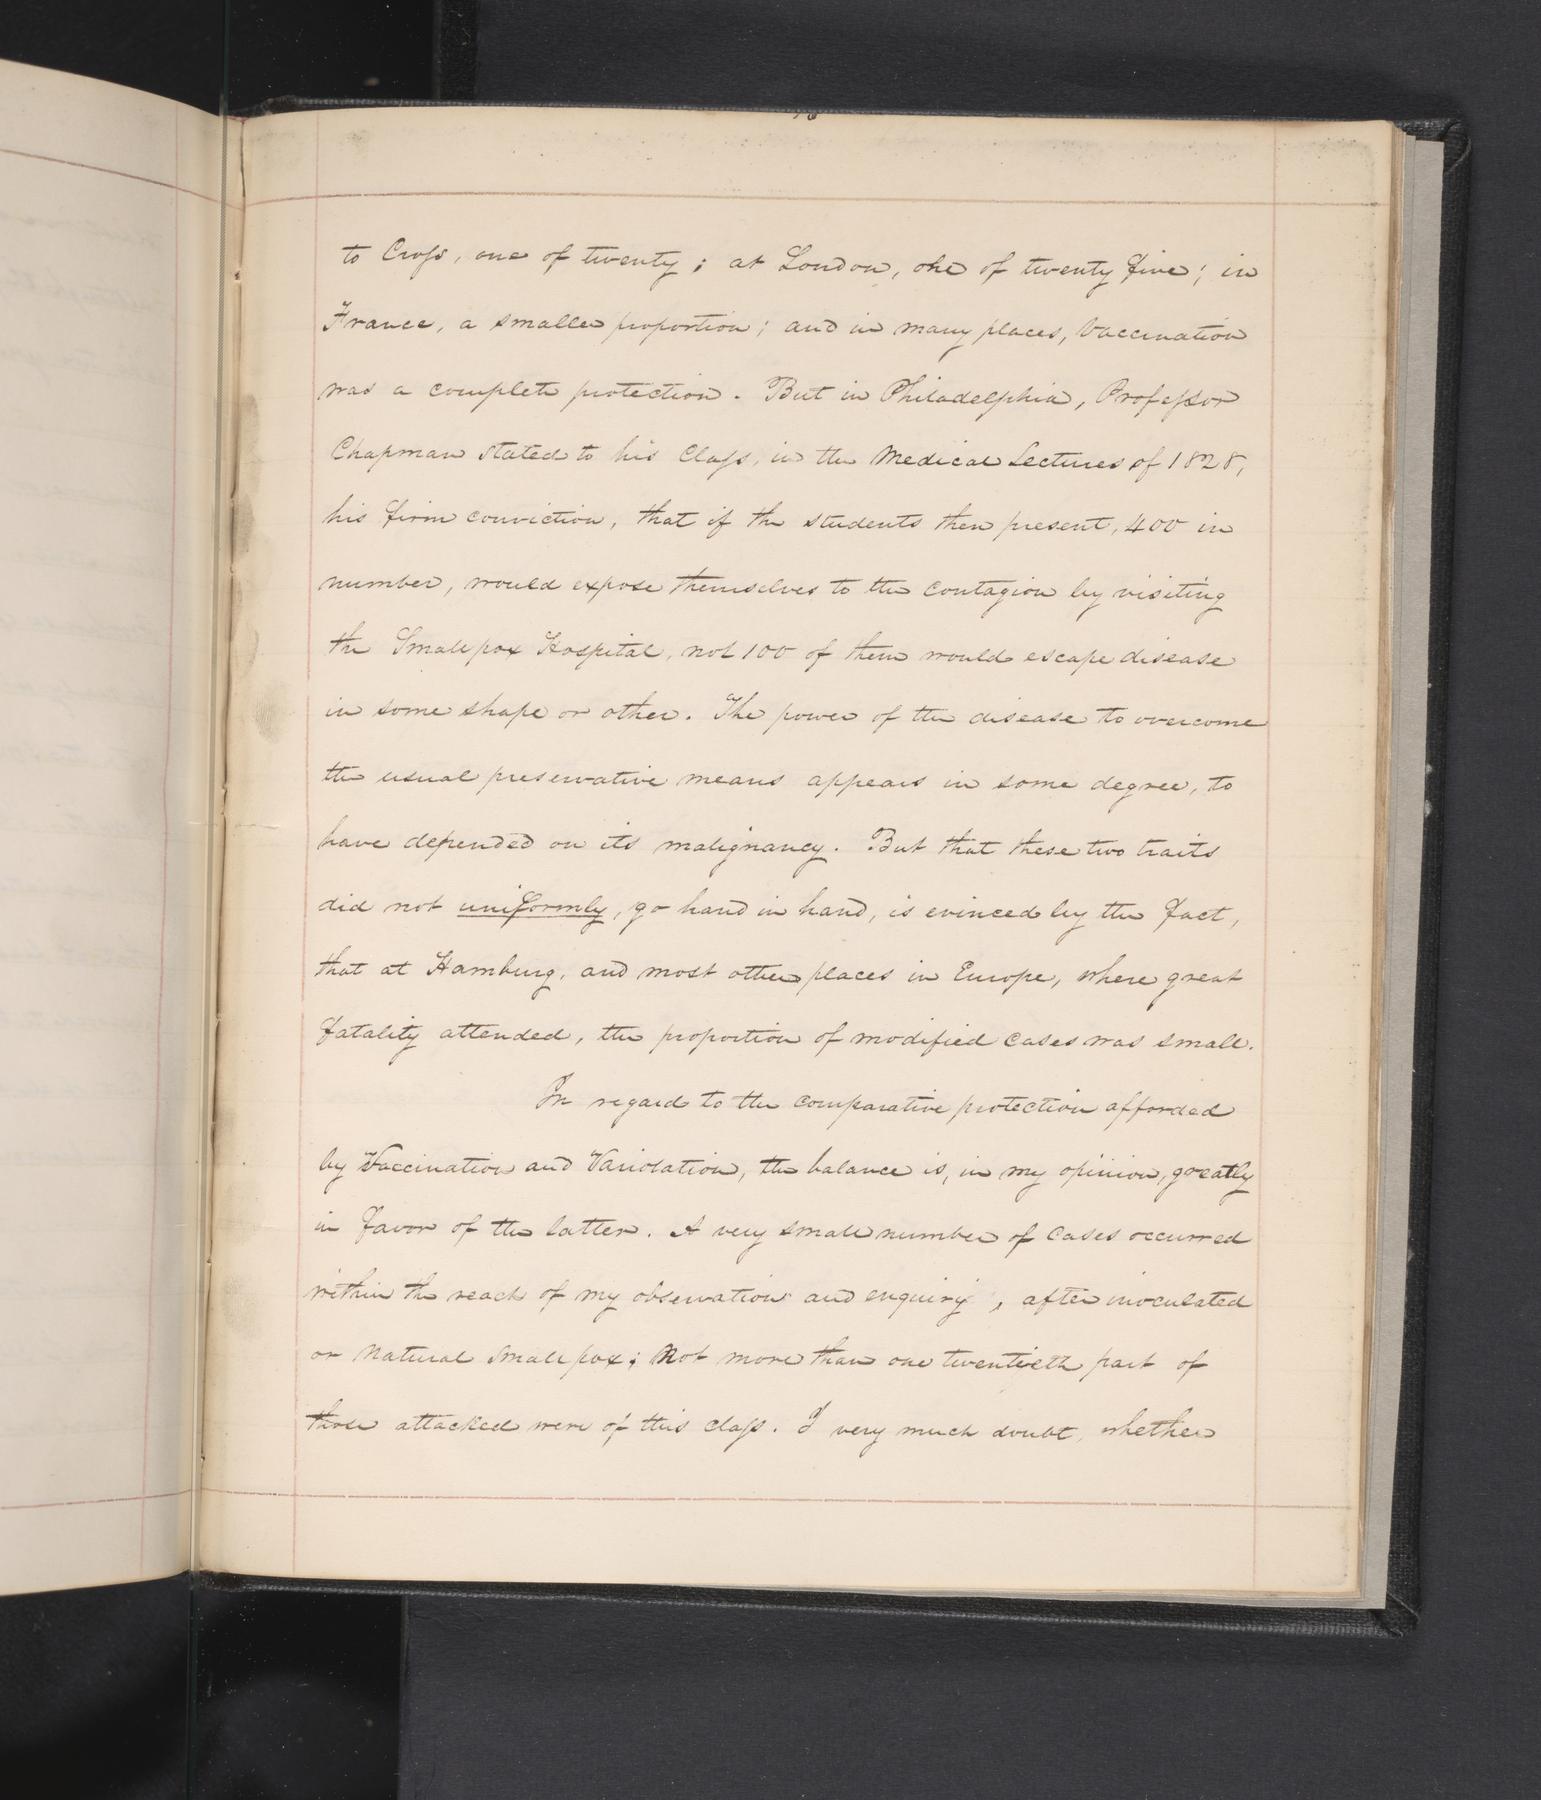 to Croſs, one of twenty; at London, one of twenty five; in
France, a smaller proportion; and in many places, Vaccination
was a complete protection. But in Philadelphia, Profeſsor
Chapman stated to his Claſs, in the Medical Lectures of 1828,
his firm conviction, that if the students then present, 400 in
number, would expose themselves to the contagion by visiting
the Small pox Hospital, not 100 of them would escape disease
in some shape or other. The power of the disease to overcome
the usual preservative means appears in some degree, to
have depended on its malignancy. But that these two traits
did not uniformly, go hand in hand, is evinced by the fact,
that at Hamburg, and most other places in Europe, where great
fatality attended, the proportion of modified cases was small.
In regard to the comparative protection afforded
by Vaccination and Variolation, the balance is, in my opinion, greatly
in favor of the latter. A very small number of cases occurred
within the reach of my observation and enquiry, after inoculated
or natural Small pox; Not more than one twentieth part of
those attacked were of this claſs. I very much doubt, whether